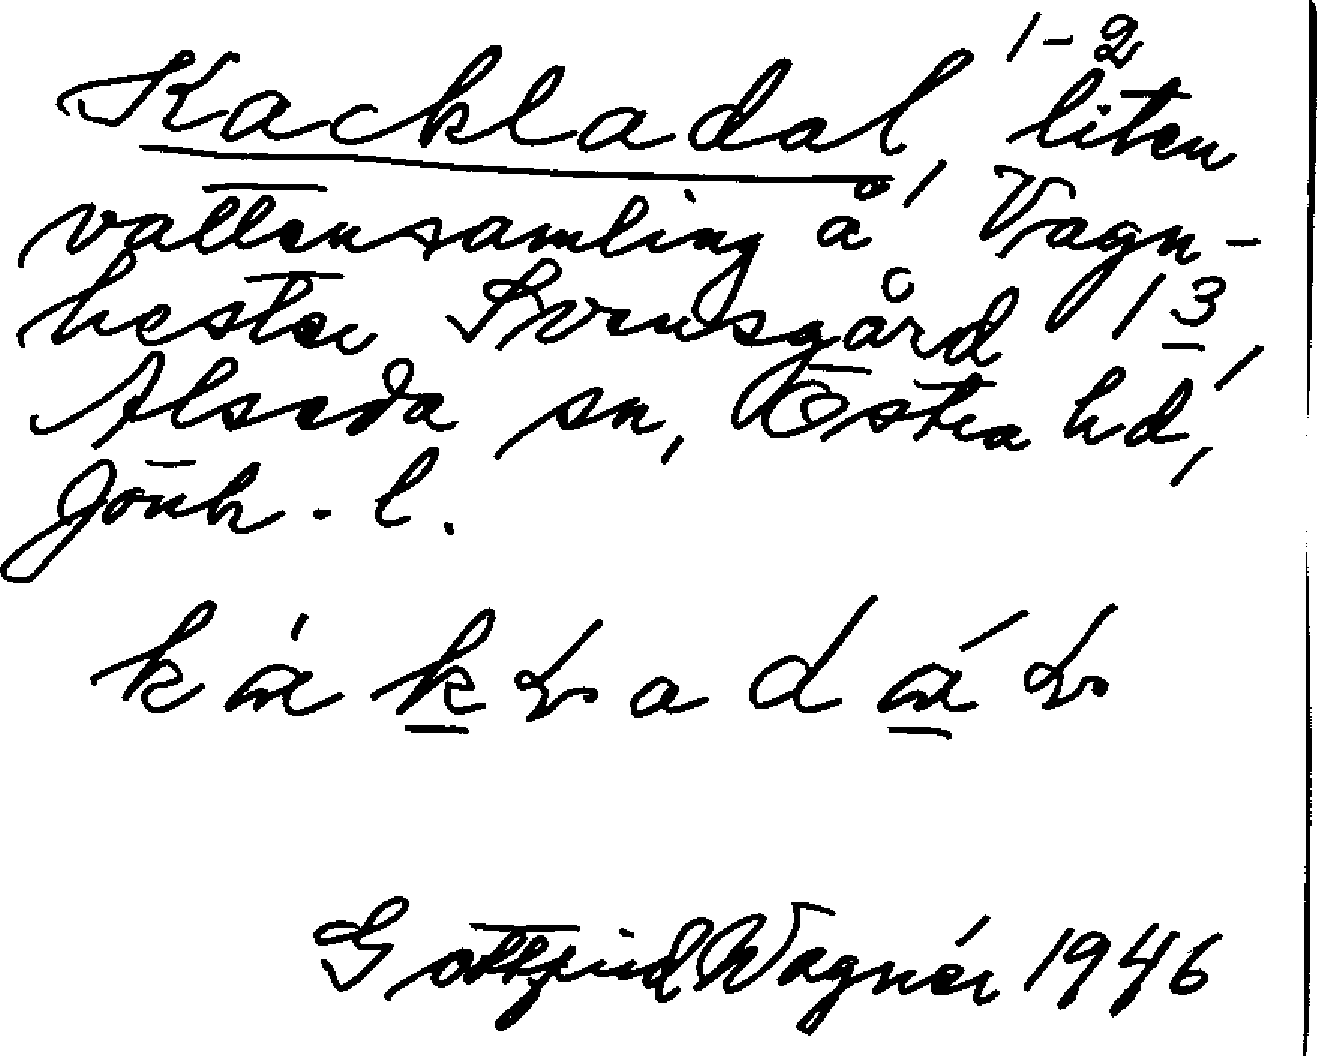 Kackladal, liten
vattensamling å Vagn-
hester Svensgård 1 3,
Alseda sn, Östra hd,
Jönk. l.
Gottfrid Wagnér 1946